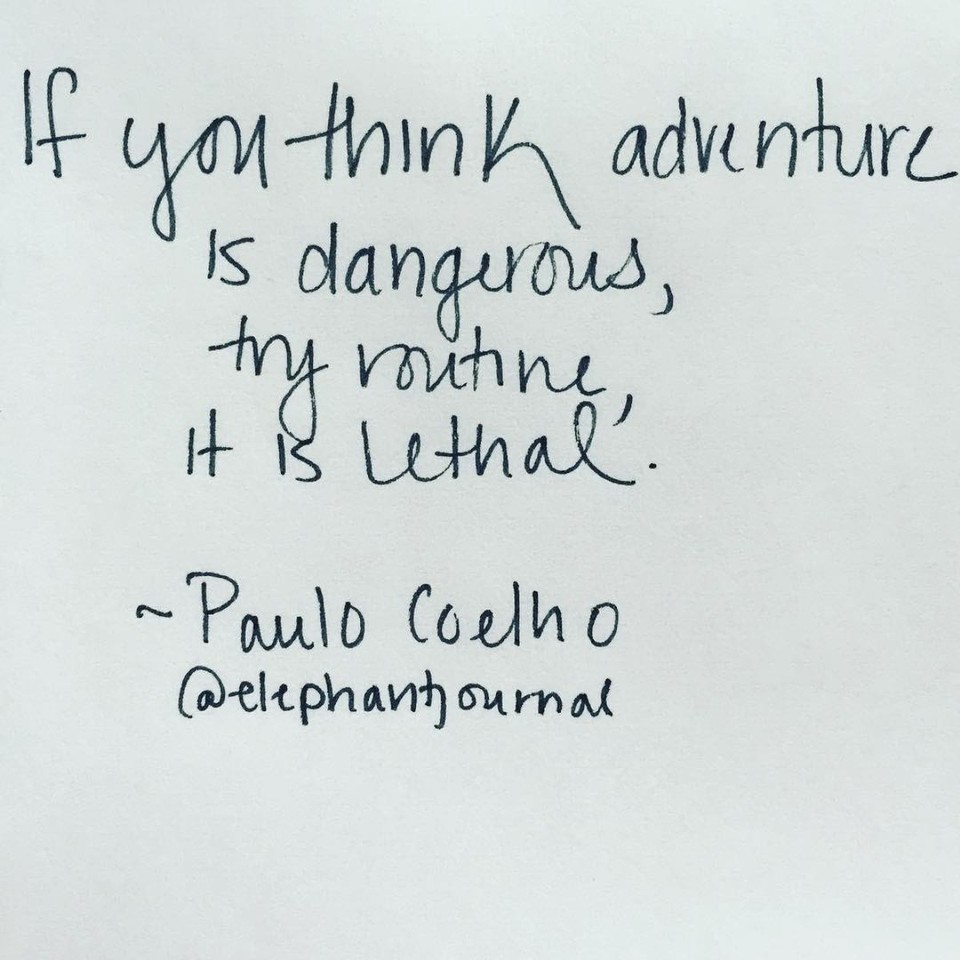 If you think adventure
is dangerous,
try routine,
it is lethal.
~ Paulo Coelho
@elephantjournal